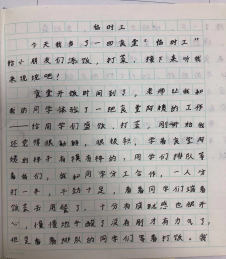 临时工
今天我当了一回食堂“临时工”
给小朋友们盛饭，打菜，接下来听我
来说说吧！
食堂开饭时间到了，老师让我和
我的同学体验了一把食堂阿姨的工作
——给同学们盛饭，打菜，刚开始我
还觉得很新鲜，很轻松，学着食堂阿
姨的样子有模有样的，同学们排队等
着我们，我和同学分工合作，一人分
打一半，干劲十足，看着同学们端着
饭菜去用餐了，十分有成就感也很开
心，慢慢地手酸了没有刚才有力气了，
但是看着排队的同学们等着打饭，我